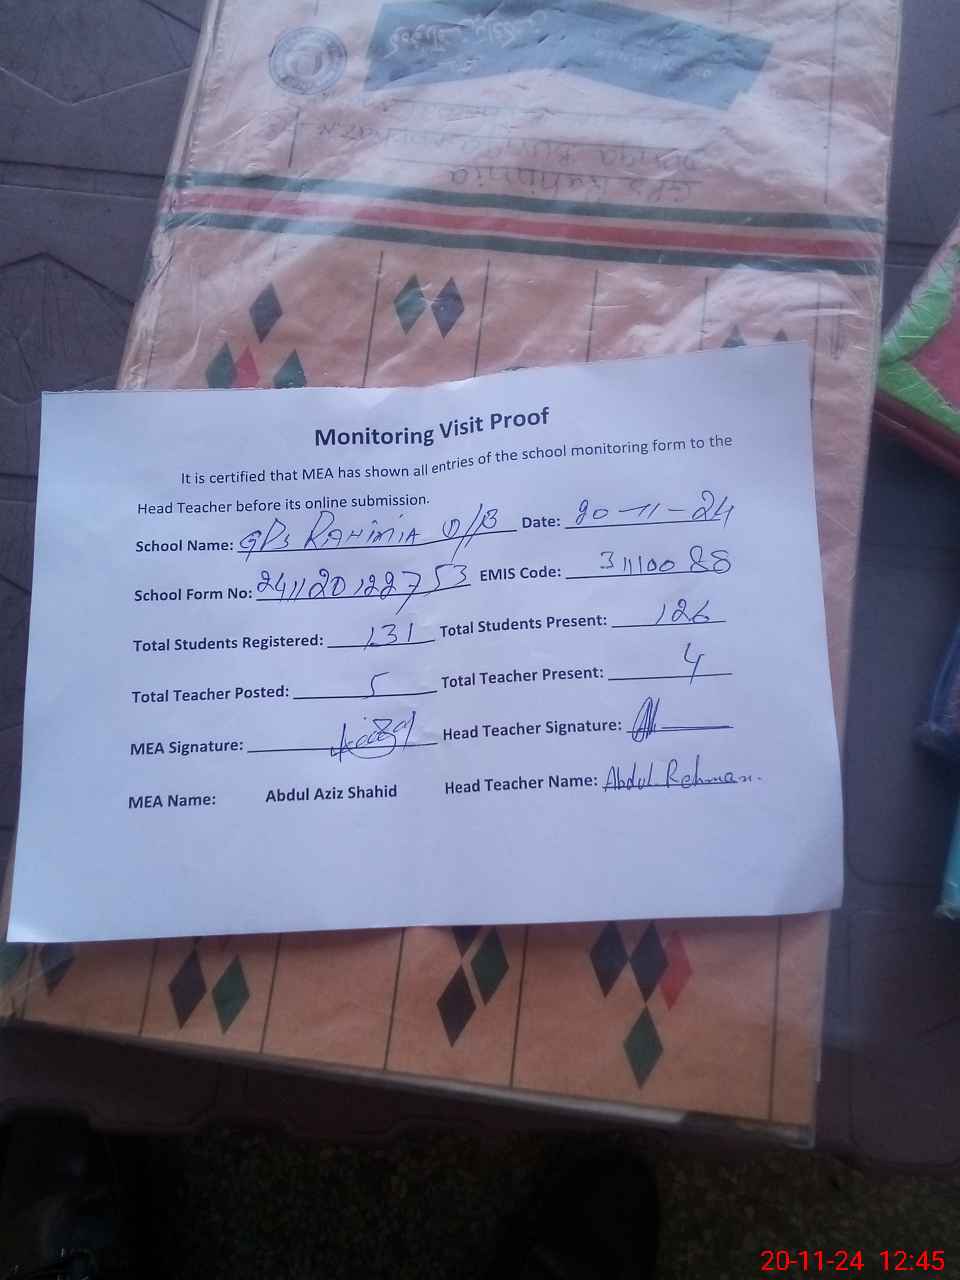 Monitoring Visit Proof
It is certified that MEA has shown all entries of the school monitoring form to the
Head Teacher before its online submission.
School Name: GPS RAHIMIA D/B Date: 20-11-24
School Form No: 241120122753 EMIS Code: 31110088
Total Students Registered: 131 Total Students Present: 126
Total Teacher Posted: 5 Total Teacher Present: 4
MEA Signature: Head Teacher Signature:
MEA Name: Abdul Aziz Shahid Head Teacher Name: Abdul Rehman.
20-11-24 12:45